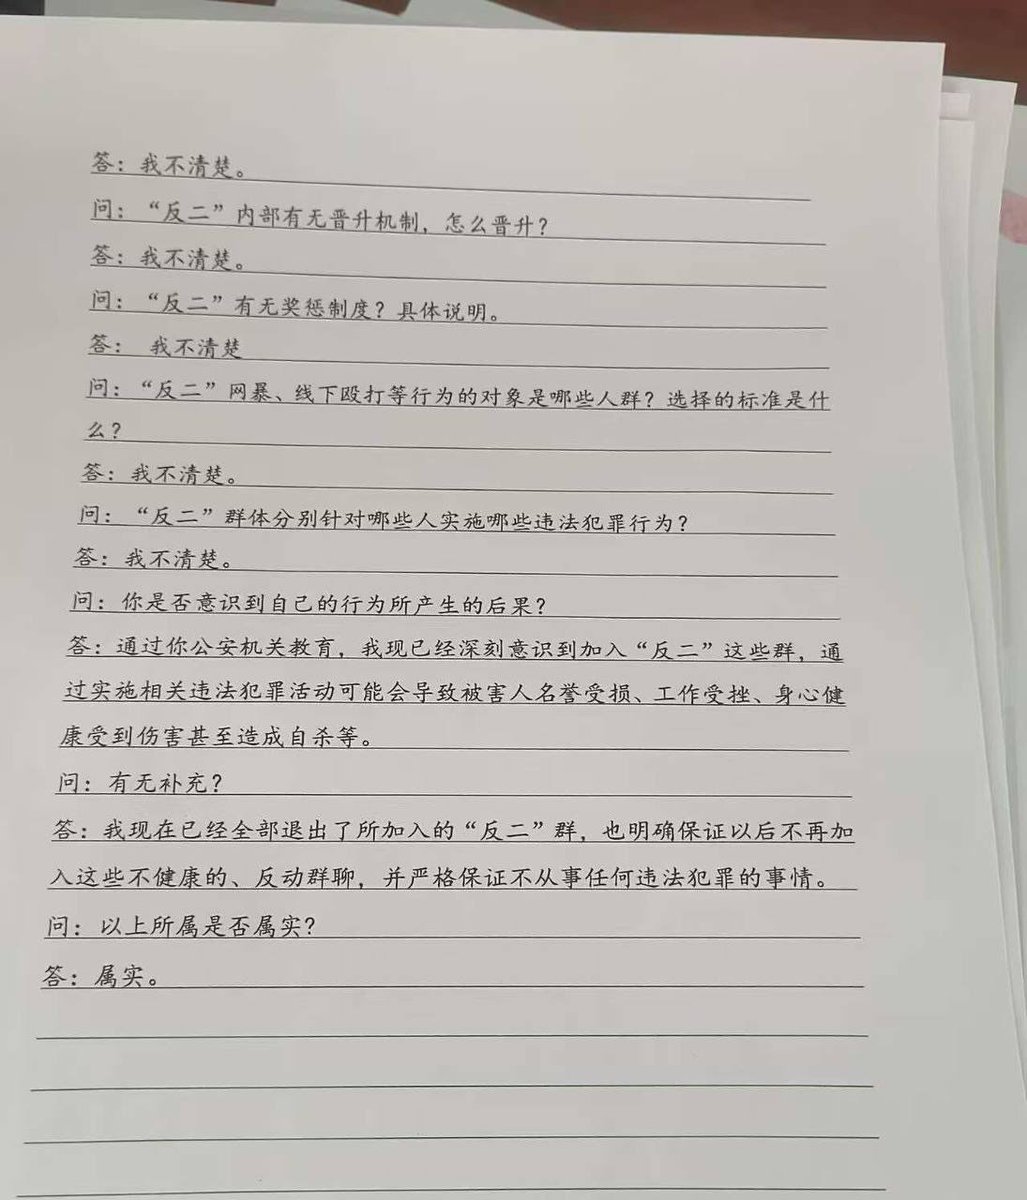 答：我不清楚。
问：“反二”内部有无晋升机制，怎么晋升？
答：我不清楚。
问：“反二”有无奖惩制度？具体说明。
答： 我不清楚
问：“反二”网暴、线下殴打等行为的对象是哪些人群？选择的标准是什
么？
答：我不清楚。
问：“反二”群体分别针对哪些人实施哪些违法犯罪行为？
答：我不清楚。
问：你是否意识到自己的行为所产生的后果？
答：通过你公安机关教育，我现已经深刻意识到加入“反二”这些群，通
过实施相关违法犯罪活动可能会导致被害人名誉受损、工作受挫、身心健
康受到伤害甚至造成自杀等。
问：有无补充？
答：我现在已经全部退出了所加入的“反二”群，也明确保证以后不再加
入这些不健康的、反动群聊，并严格保证不从事任何违法犯罪的事情。
问：以上所属是否属实？
答：属实。